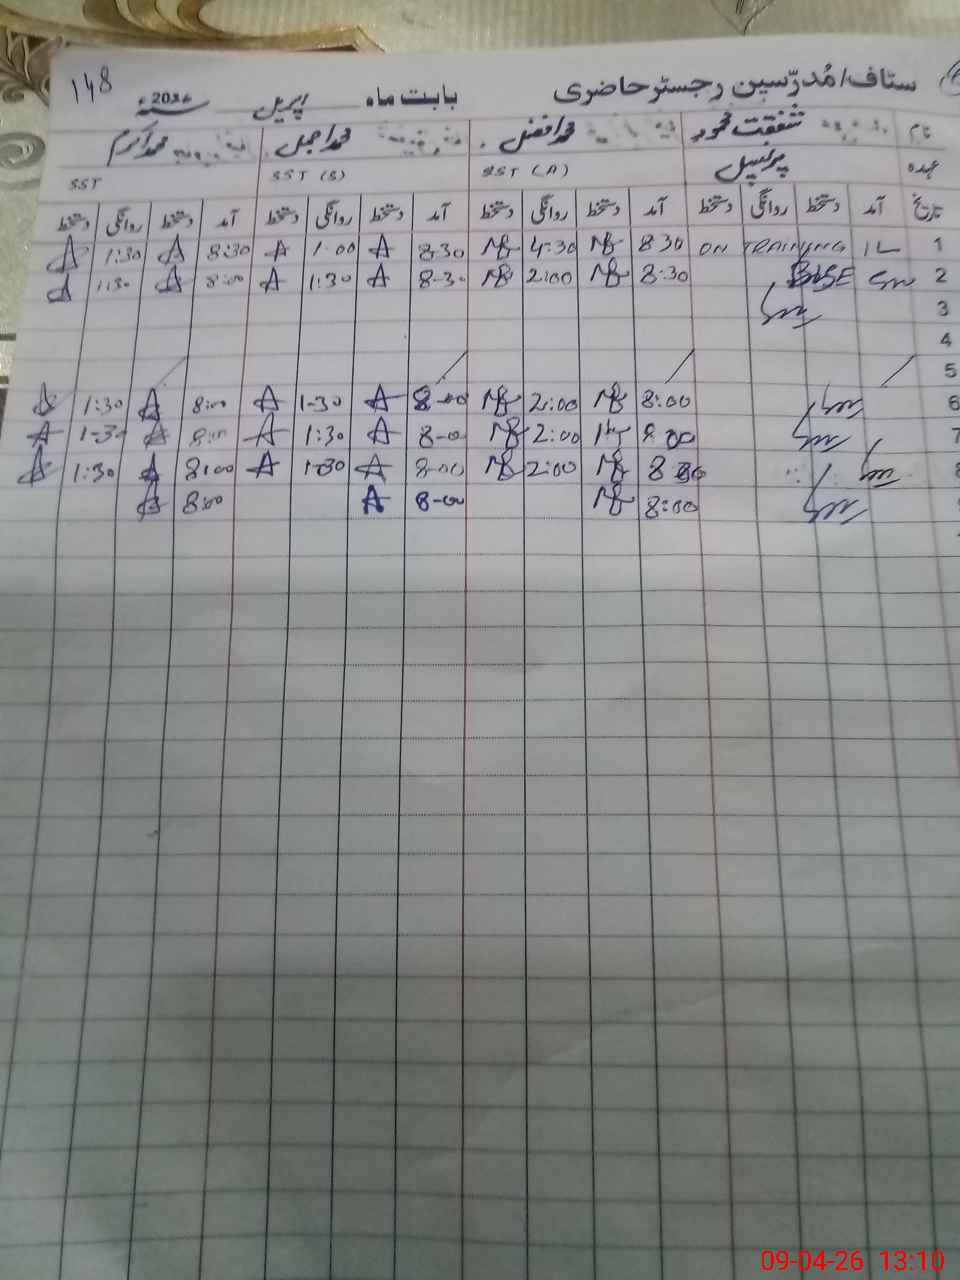 148
ستاف/مُدرّسین رجسٹر حاضری بابت ماہ اپریل 2026ء
نام شفقت محمود محمد افضل محمد اجمل محمد اکرم
عہدہ پرنسپل SST (A) SST (S) SST
تاریخ آمد دستخط روانگی دستخط آمد دستخط روانگی دستخط آمد دستخط روانگی دستخط آمد دستخط روانگی دستخط
1 ON TRAINING 8 30 4:30 8-30 1:00 8:30 1:30
2 BISE 8:30 2:00 8-30 1:30 8:00 1:30
3
4
5
6 8:00 2:00 8-00 1-30 8:00 1:30
7 8 00 2:00 8-00 1:30 8:00 1-30
8 8 30 2:00 8-00 1-30 8:00 1:30
9 8:00 8-00 8:00
09-04-26 13:10